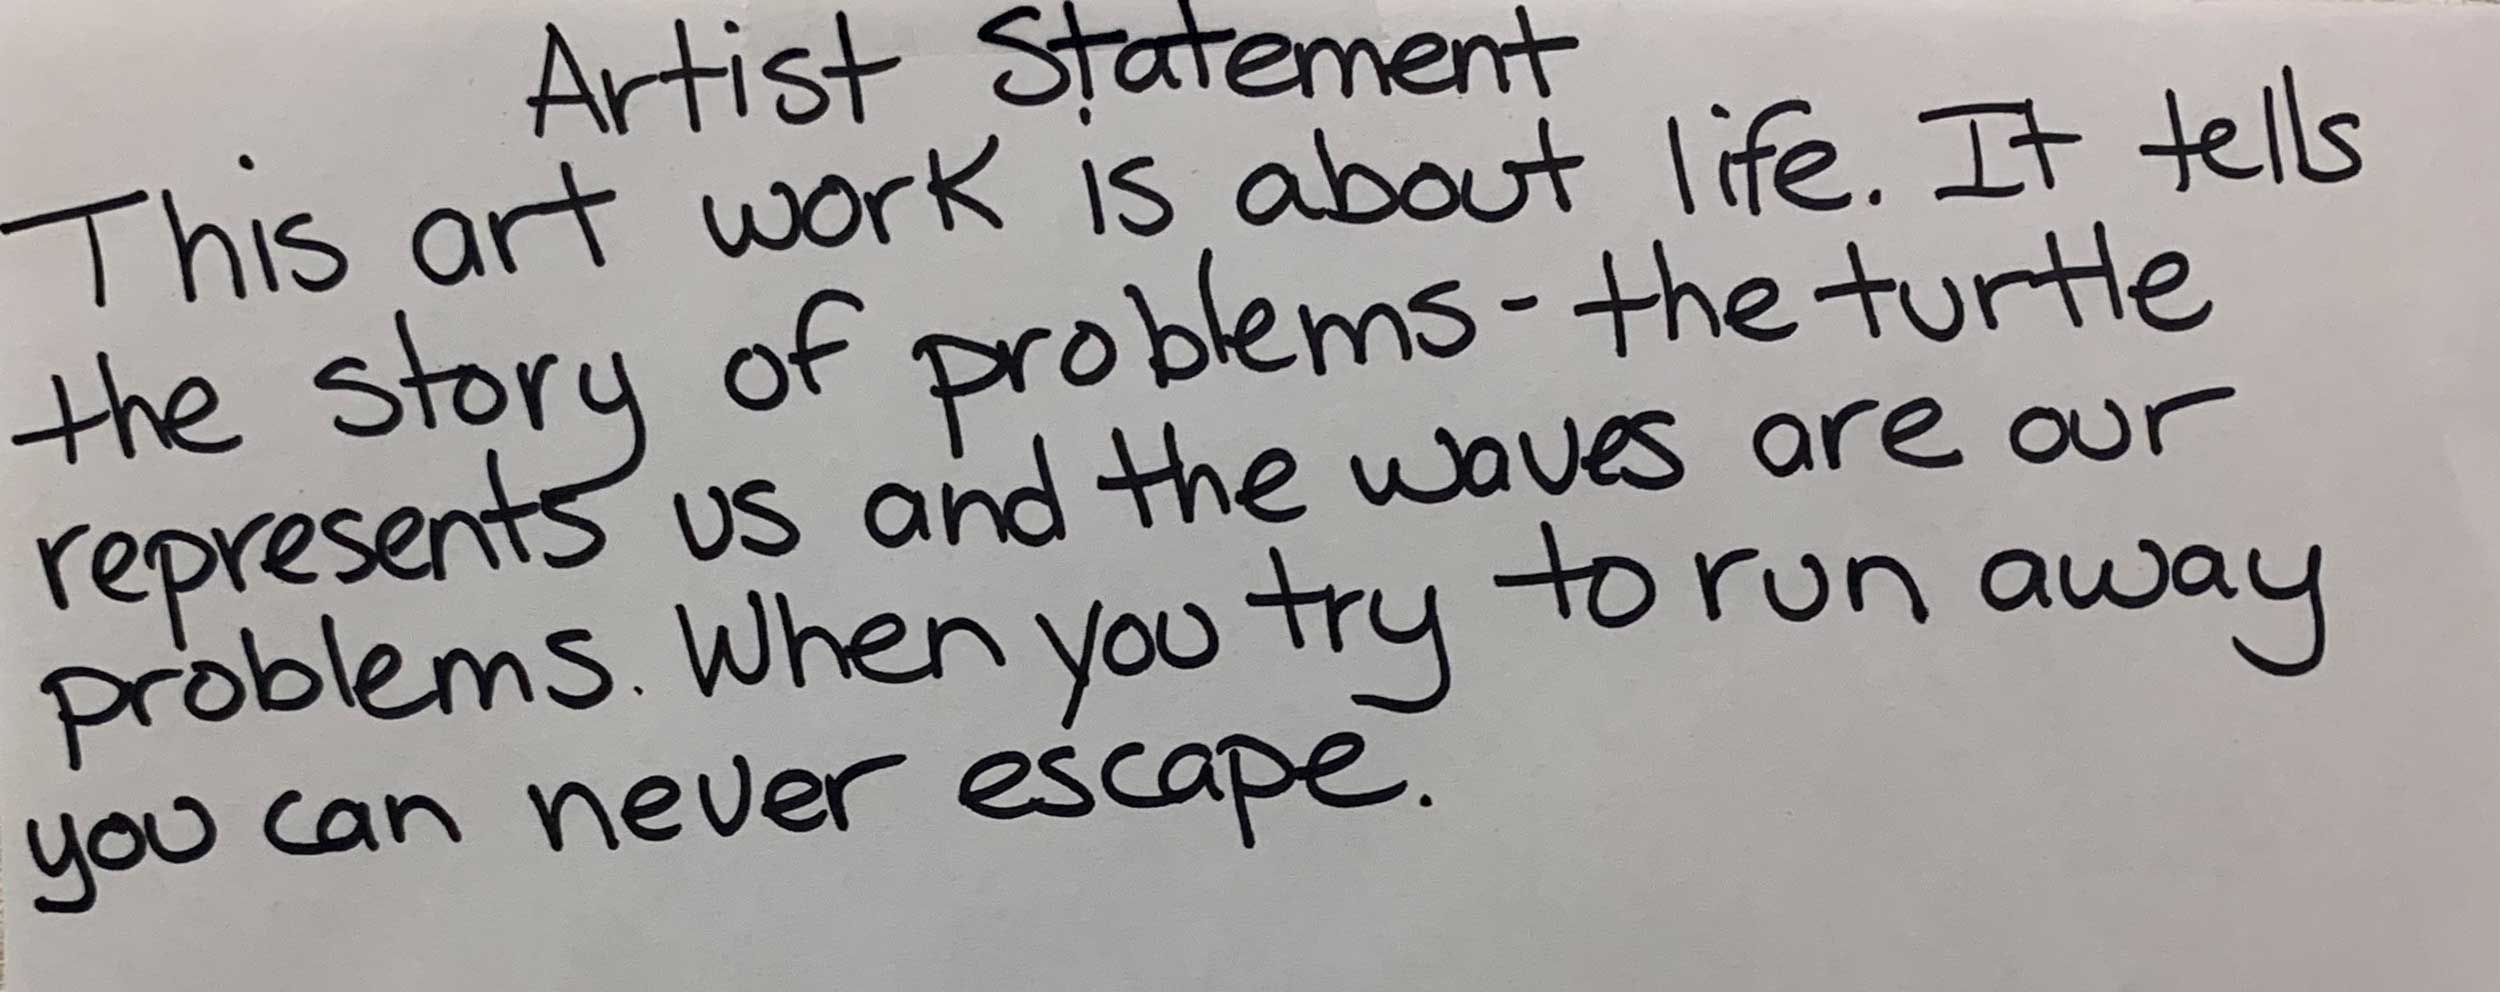 Artist Statement
This art work is about life. It tells
the story of problems - the turtle
represents us and the waves are our
problems. When you try to run away
you can never escape.